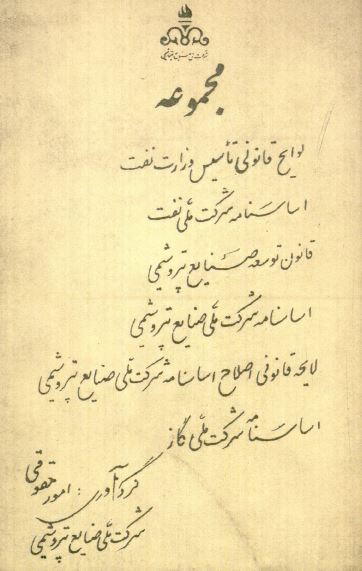 شرکت ملی صنایع پتروشیمی
مجموعه
لوایح قانونی تأسیس وزارت نفت
اساسنامه شرکت ملی نفت
قانون توسعه صنایع پتروشیمی
اساسنامه شرکت ملی صنایع پتروشیمی
لایحه قانونی اصلاح اساسنامه شرکت ملی صنایع پتروشیمی
اساسنامه شرکت ملی گاز
گردآوری : امور حقوقی
شرکت ملی صنایع پتروشیمی